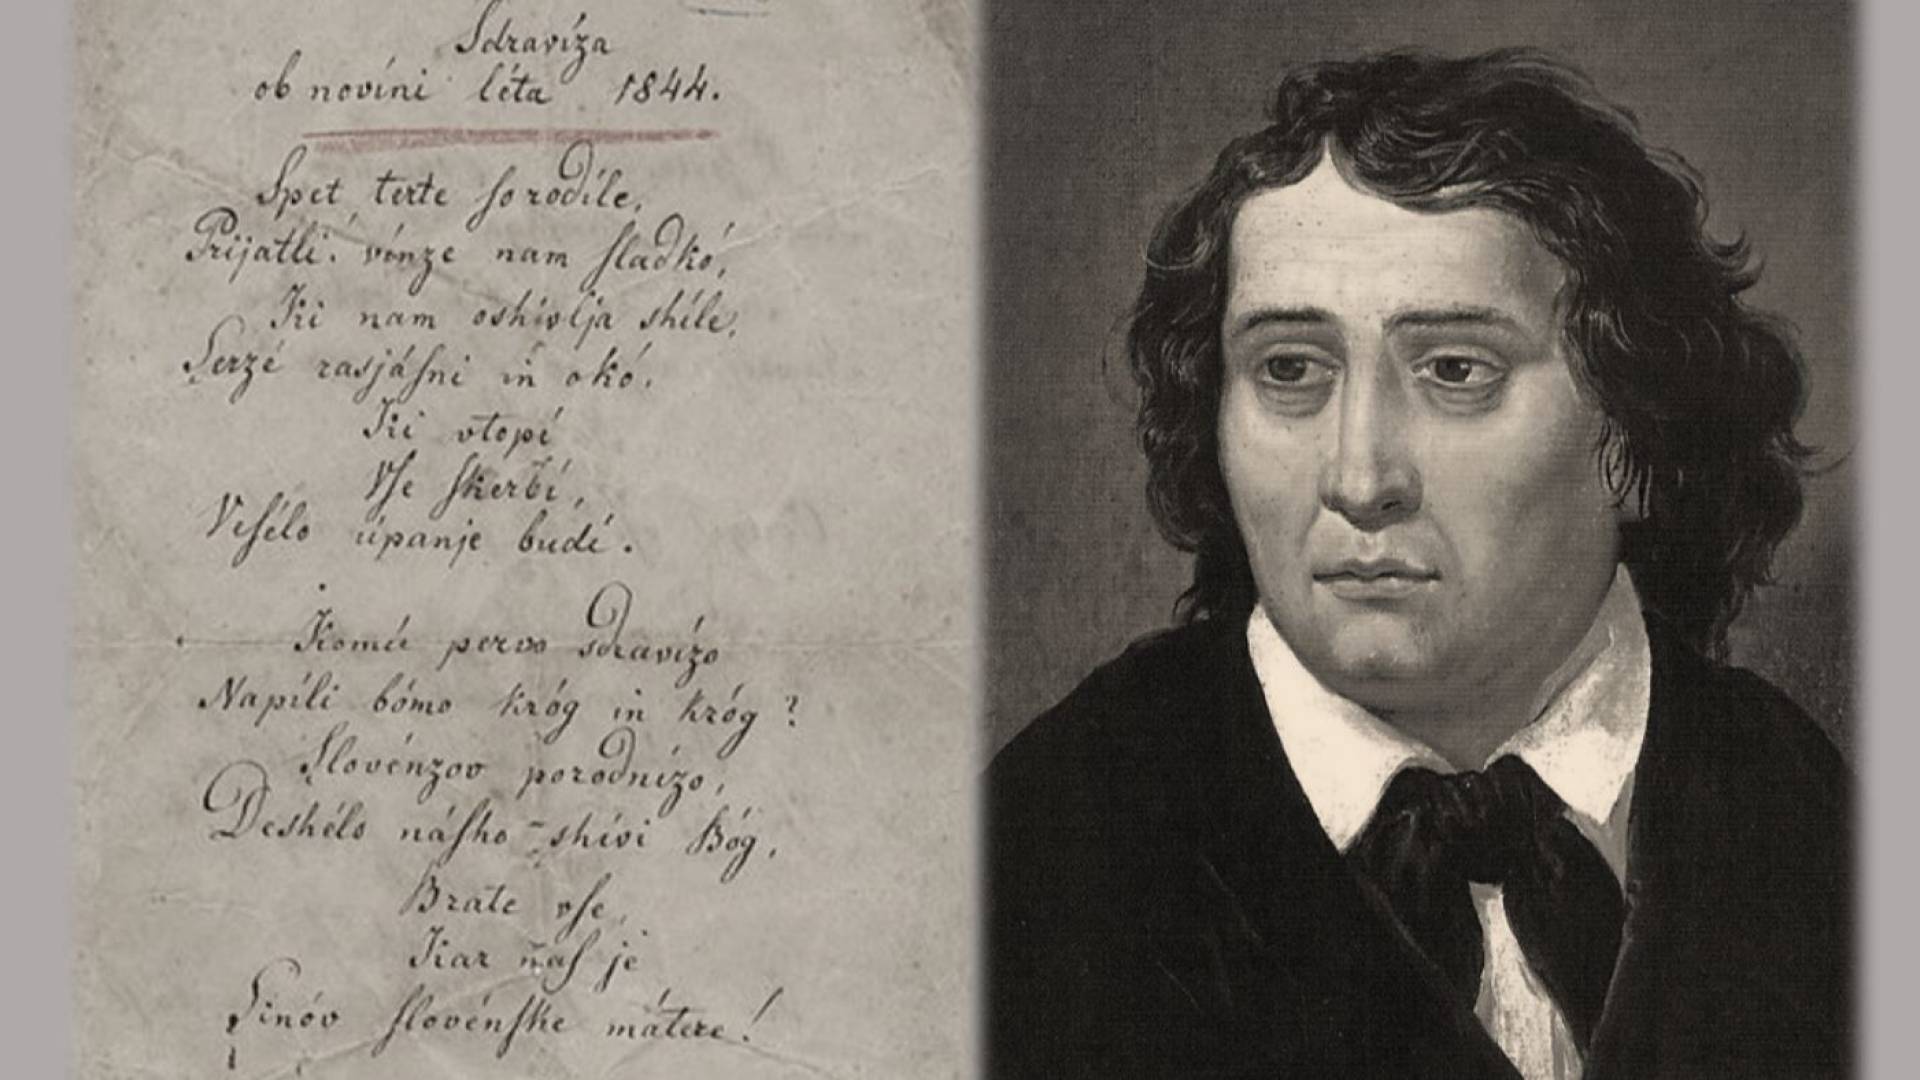 Sdravíza
ob novíni léta 1844.
Spet terte so rodíle,
Prijatli! vínze nam sladkó,
Ki nam oshivlja shile,
Serzé rasjásni in okó.
Ki vtopí
Vse skerbí,
Vesélo úpanje budí.
Komú pervo sdravízo
Napíli bómo króg in króg?
Slovénzov porodnízo,
Deshélo násho shívi Bóg,
Brate vse,
Kar nas je
Sinóv slovénske mátere!